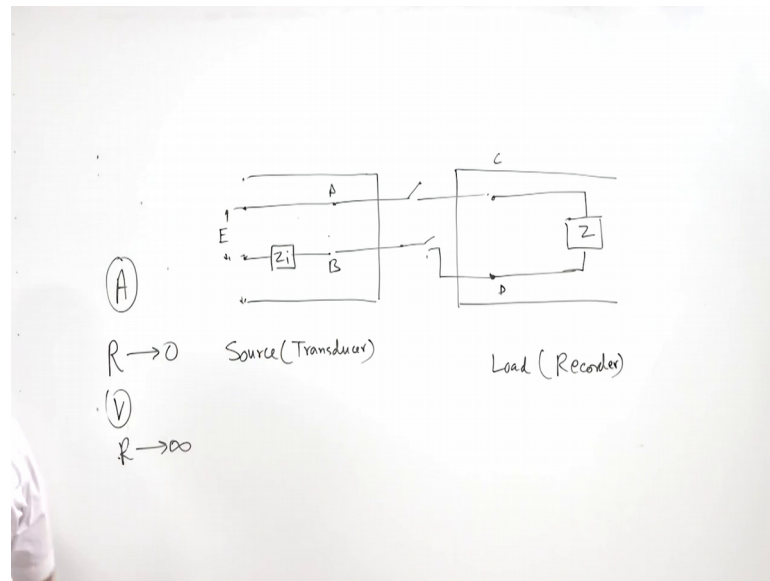 C
A
E
Zi
B
Z
D
A
R→0
Source (Transducer)
Load (Recorder)
V
R→∞